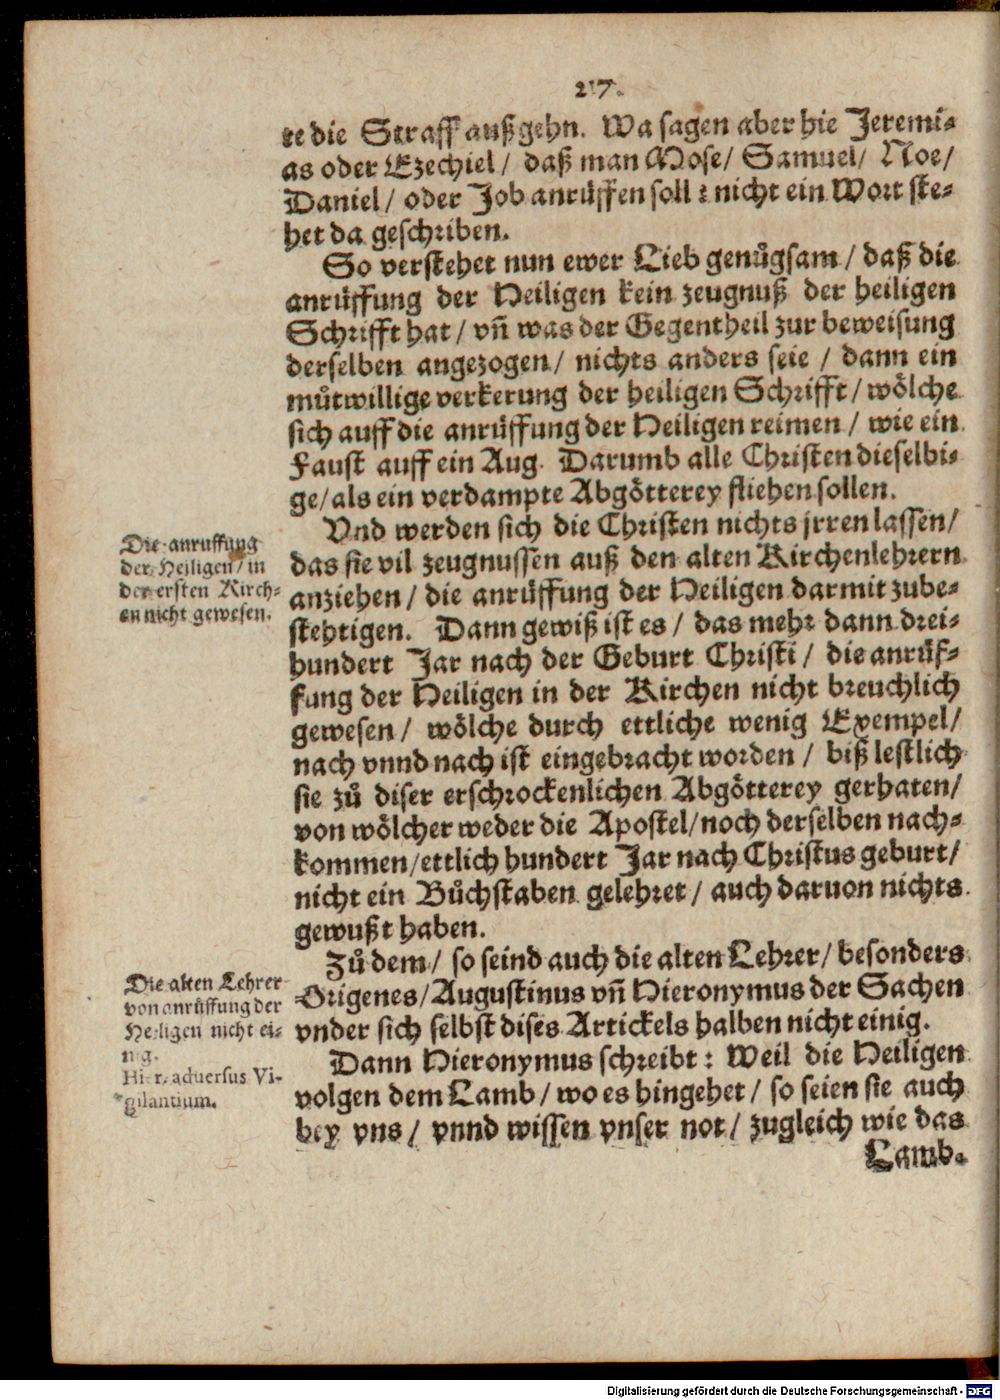 217.
te die Straff außgehn. Wa sagen aber hie Jeremi⸗
as oder Ezechiel/ daß man Mose/ Samuel/ Noe/
Daniel/ oder Job anrüffen soll? nicht ein Wort ste⸗
het da geschriben.
So verstehet nun ewer Lieb genůgsam/ daß die
anrüffung der Heiligen kein zeugnuß der heiligen
Schrifft hat/ vñ was der Gegentheil zur beweisung
derselben angezogen/ nichts anders seie/ dann ein
můtwillige verkerung der heiligen Schrifft/ wölche
sich auff die anrüffung der Heiligen reimen/ wie ein
Faust auff ein Aug. Darumb alle Christen dieselbi⸗
ge/ als ein verdampte Abgötterey fliehen sollen.
Vnd werden sich die Christen nichts jrren lassen/
das sie vil zeugnussen auß den alten Kirchenlehrern
anziehen/ die anrüffung der Heiligen darmit zube⸗
stehtigen. Dann gewiß ist es/ das mehr dann drei⸗
hundert Jar nach der Geburt Christi/ die anrüf⸗
fung der Heiligen in der Kirchen nicht breuchlich
gewesen/ wölche durch ettliche wenig Exempel/
nach vnnd nach ist eingebracht worden/ biß lestlich
sie zů diser erschrockenlichen Abgötterey gerhaten/
von wölcher weder die Apostel/ noch derselben nach⸗
kommen/ ettlich hundert Jar nach Christus geburt/
nicht ein Bůchstaben gelehret/ auch daruon nichts
gewußt haben.
Zů dem/ so seind auch die alten Lehrer/ besonders
Origenes/ Augustinus vñ Hieronymus der Sachen
vnder sich selbst dises Artickels halben nicht einig.
Dann Hieronymus schreibt: Weil die Heiligen
volgen dem Lamb/ wo es hingehet/ so seien sie auch
bey vns/ vnnd wissen vnser not/ zugleich wie das
Lamb.
Die anruffung
der Heiligen/ in
der ersten Kirch⸗
en nicht gewesen.
Die alten Lehrer
von anrüffung der
Heiligen nicht ei⸗
nig.
Hier. aduersus Vi-
gilantium.
Digitalisierung gefördert durch die Deutsche Forschungsgemeinschaft - DFG